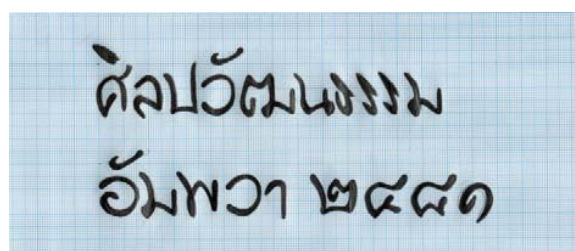 ศิลปวัฒนธรรม
อัมพวา ๒๔๔๑